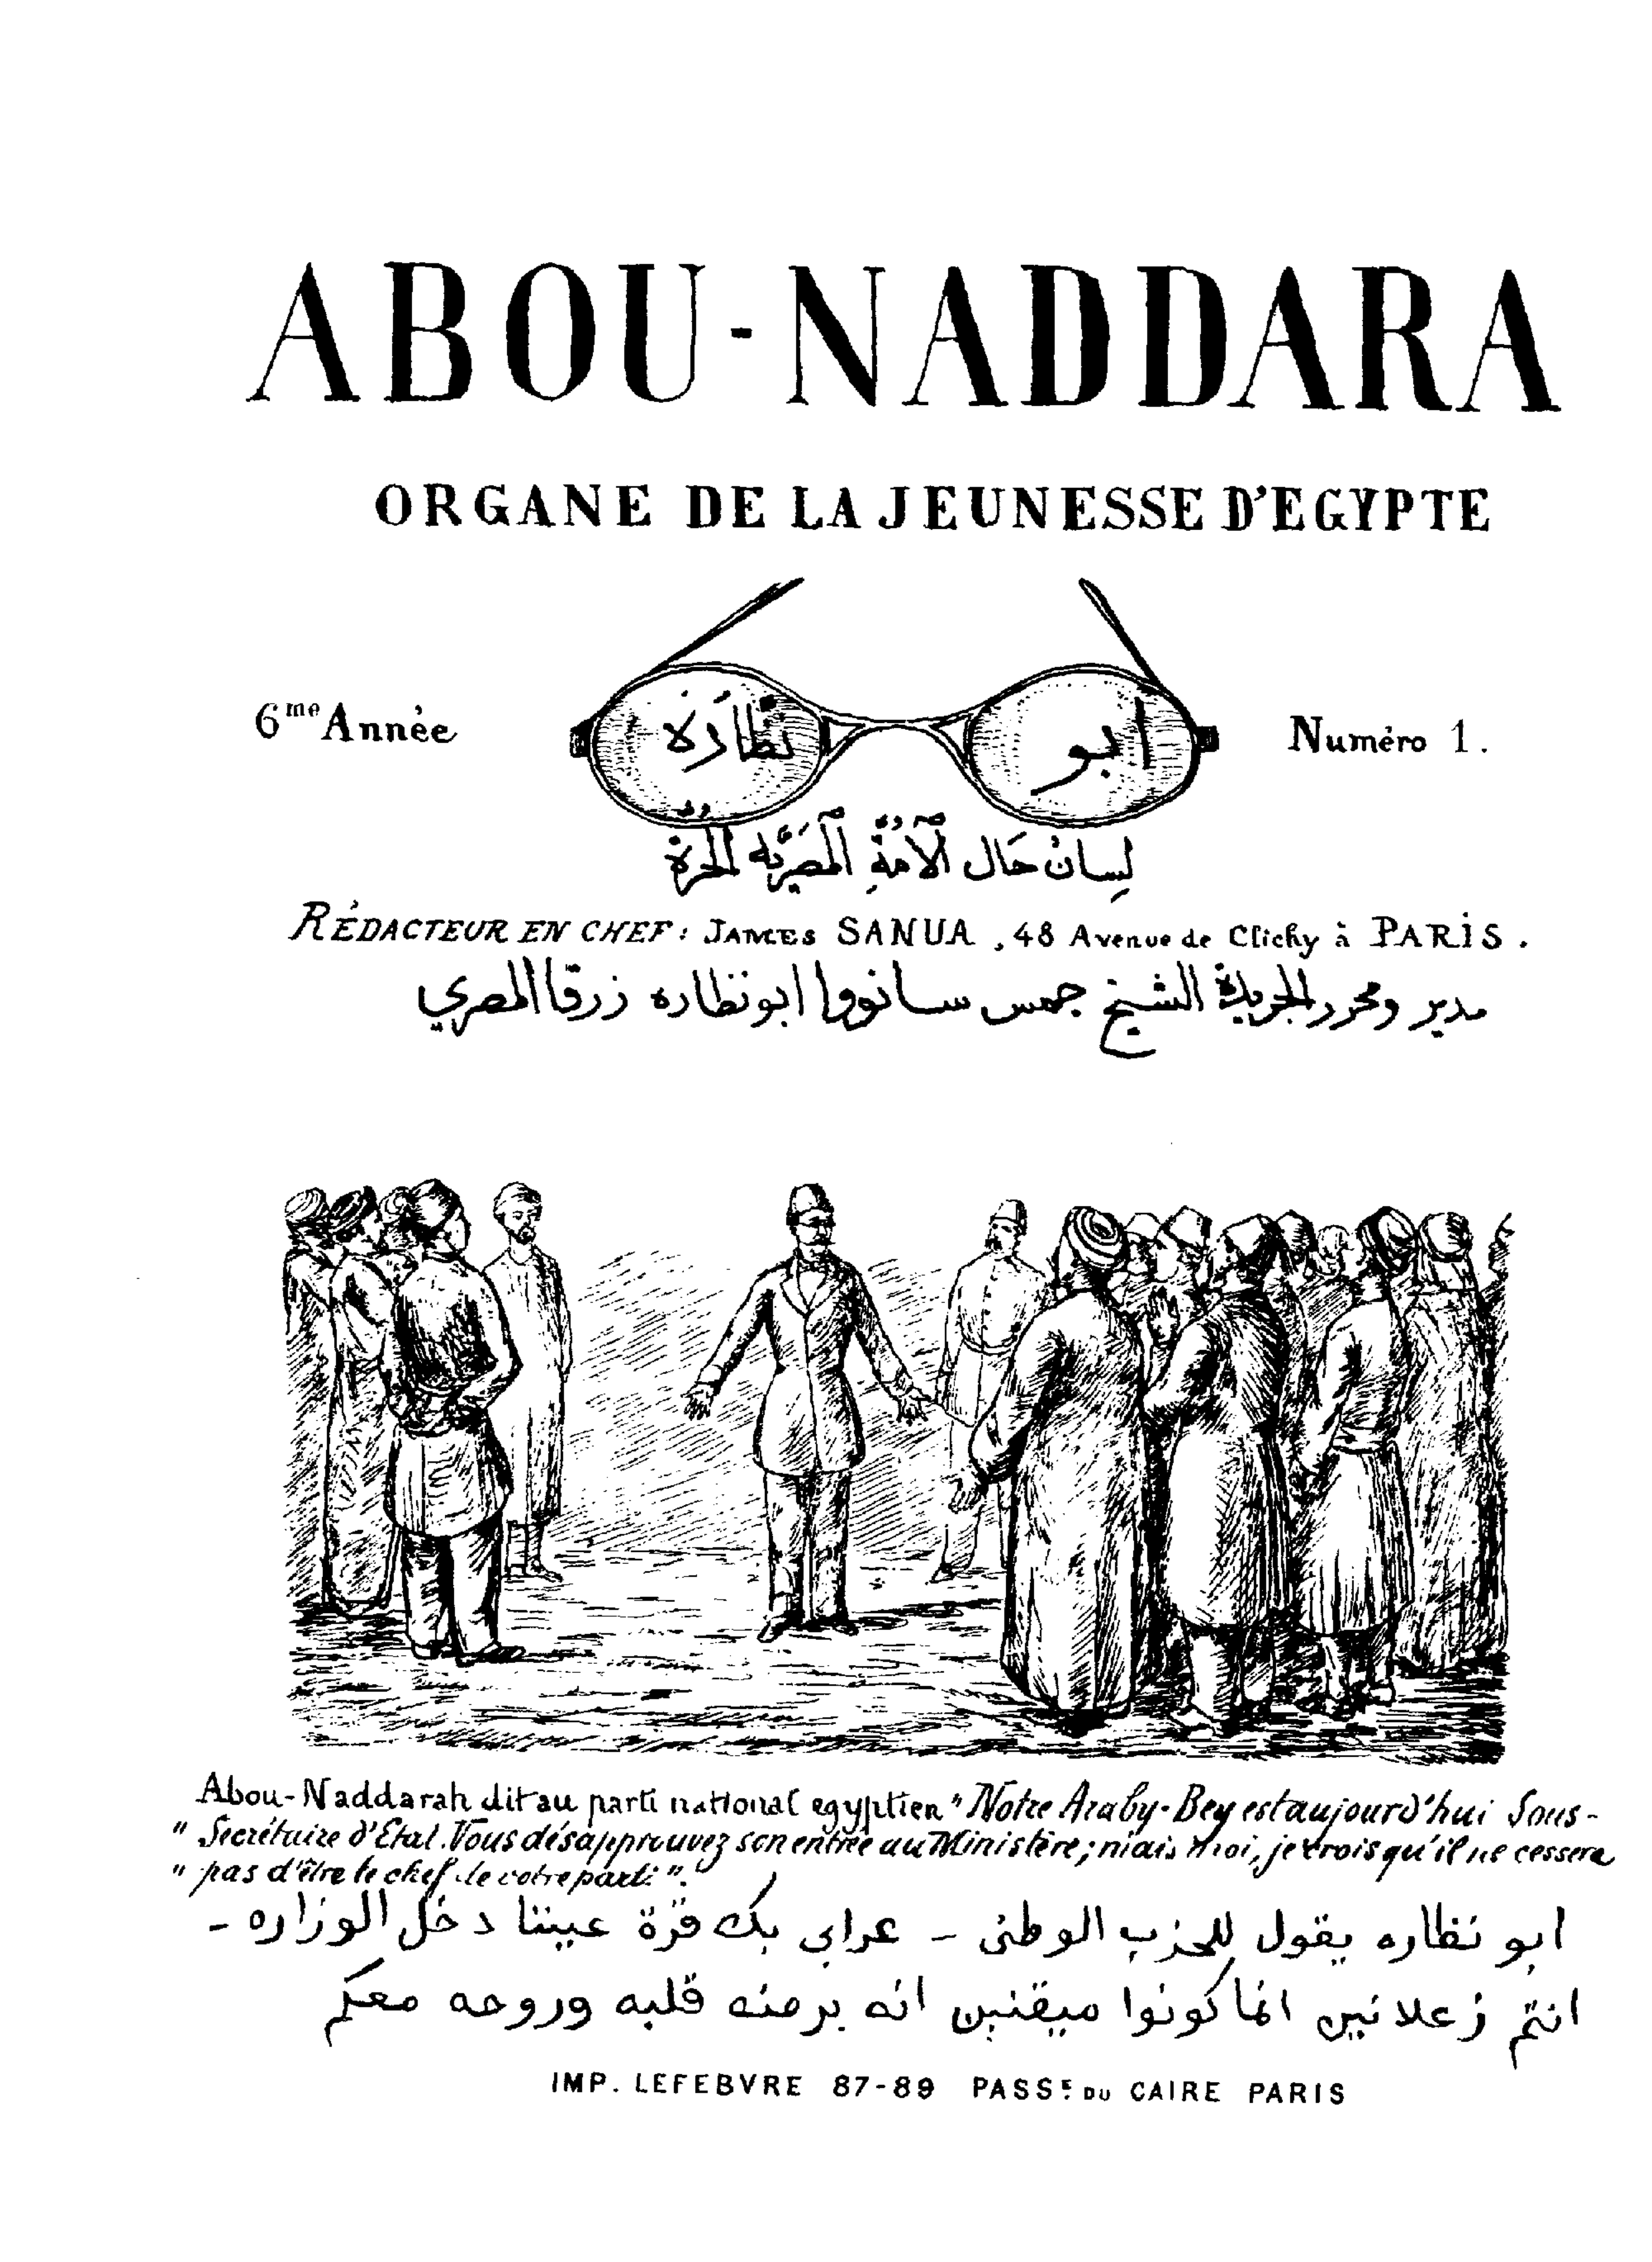 ABOU-NADDARA
ORGANE DE LA JEUNESSE D'EGYPTE
6me Année
ابو نَظّارَة
Numéro 1.
لِسانُ حَال ٱلأمَّةِ ٱلمَصرِيَّه ٱلحُرَّة
RÉDACTEUR EN CHEF: JAMES SANUA, 48 Avenue de Clichy à PARIS.
مدير ومحرر الجريدة الشيخ جمس سانووا ابونظاره زرقا المصري
Abou-Naddarah dit au parti national egyptien "Notre Araby-Bey est aujourd'hui Sous-
" Secrétaire d'Etat. Vous désapprouvez son entrée au Ministère; mais moi, je crois qu'il ne cessera
" pas d'être le chef de votre parti".
ابو نظاره يقول للحزب الوطنى - عرابي بك قرة عيننا دخل الوزاره -
انتم زعلانين انما كونوا ميقنين انه برمنه قلبه وروحه معكم
IMP. LEFEBVRE 87-89 PASSE DU CAIRE PARIS